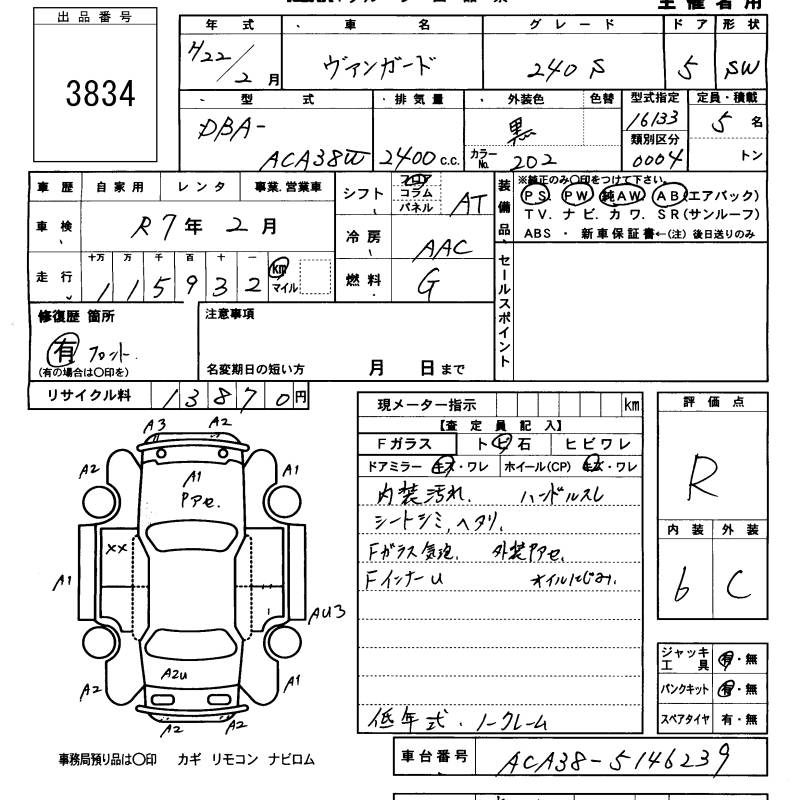 主催者用
出品番号
3834
年式 車名 グレード ドア 形状
H22/2月 ヴァンガード 240S 5 SW
型式 排気量 外装色 色替 型式指定 定員・積載
DBA-ACA38W 2400c.c. 黒 16133 5名
カラーNo. 202 類別区分 0004 トン
車歴 自家用 レンタ 事業.営業車
シフト フロア コラム パネル AT
装備品 ※純正のみ〇印をつけて下さい。
PS. PW. 純AW. AB(エアバック)
TV. ナビ. カワ. SR(サンルーフ)
ABS ・ 新車保証書←(注) 後日送りのみ
車検 R7年2月
冷房 AAC
走行 十万 万 千 百 十 一
115932 km マイル
燃料 G
セールスポイント
修復歴 箇所
有 フロント.
(有の場合は〇印を)
注意事項
名変期日の短い方 月 日まで
リサイクル料 13870円
現メーター指示 km
【査定員記入】
Fガラス トビ石 ヒビワレ
ドアミラー キズ・ワレ ホイール(CP) キズ・ワレ
内装汚れ. ハンドルスレ
シートシミ,ヘタリ.
Fガラス気泡. 外装Pアセ.
FインナーU オイルにじみ.
低年式.ノークレーム
評価点
R
内装 外装
6 C
ジャッキ工具 有・無
パンクキット 有・無
スペアタイヤ 有・無
A3 A2
A2 A1 A1
Pアセ.
XX
A1 AU3
A2 A2U A1
A2 A2
事務局預り品は〇印 カギ リモコン ナビロム
車台番号 ACA38-5146239